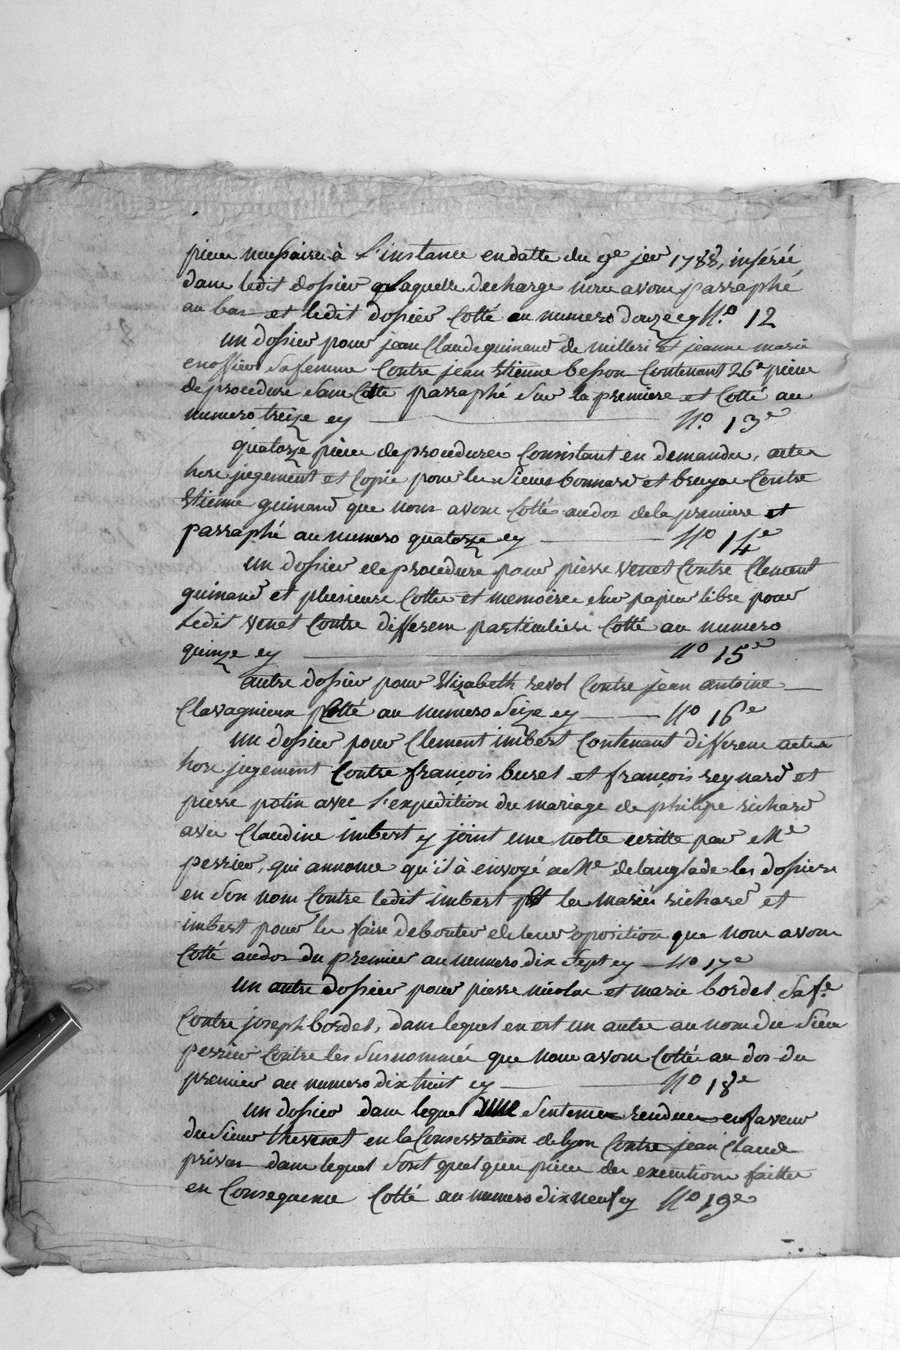 pieces nessaires à l'instance en datte du 9e jer 1788, inserée
dans ledit dossier laquelle decharge nous avons parraphé
au bas et ledit dossier Cotté au numero douze cy No. 12
un dossier pour jean Claude guinand de milleri Et jeanne marie
sa femme Contre jean Etienne besson Contenant 26e pieces
de procedure sans Cotte parraphé sur la premiere et Cotté au
numero treize cy No 13e
quatorze pieces de procedures Consistant en demandes, actes
hors jugement et Copie pour les sieurs bonnard et bruyas Contre
Etienne guinand que nous avons Cottés au dos de la premiere et
parraphé au numero quatorze cy No 14e
un dossier de procedure pour pierre venet Contre Clement
guinand et plusieurs Cottes et memoires sur papier libre pour
ledit venet Contre differens particuliers Cotté au numero
quinze cy No 15e
autre dossier pour Elizabeth revol Contre jean antoine
Clavagnieux Cotté au numero seize cy No 16e
un dossier pour Clement imbert Contenant differens actes
hors jugement Contre françois burel et françois reynard et
pierre potin avec l'expedition du mariage de philipe richard
avec Claudine imbert y joint une notte ecritte par Me
perrier, qui annonce qu'il à envoyé a Me delanglade les dossiers
en son nom Contre ledit imbert et les mariés richard et
imbert pour les faire debouter de leur oposition que nous avons
Cotté au dos du premier au numero dix sept cy No 17e
un autre dossier pour pierre nicolas et marie bordet sa fe
Contre joseph bordet, dans lequel en est un autre au nom du sieur
perrier Contre les susnommés que nous avons Cotté au dos du
premier au numero dix huit cy No 18e
un dossier dans lequel sentences rendues en faveur
du sieur thevenet en la Conservation de lyon Contre jean Claude
privas dans lequel sont quelques pieces des executions faittes
en Consequence Cotté au numero dix neuf cy No 19e